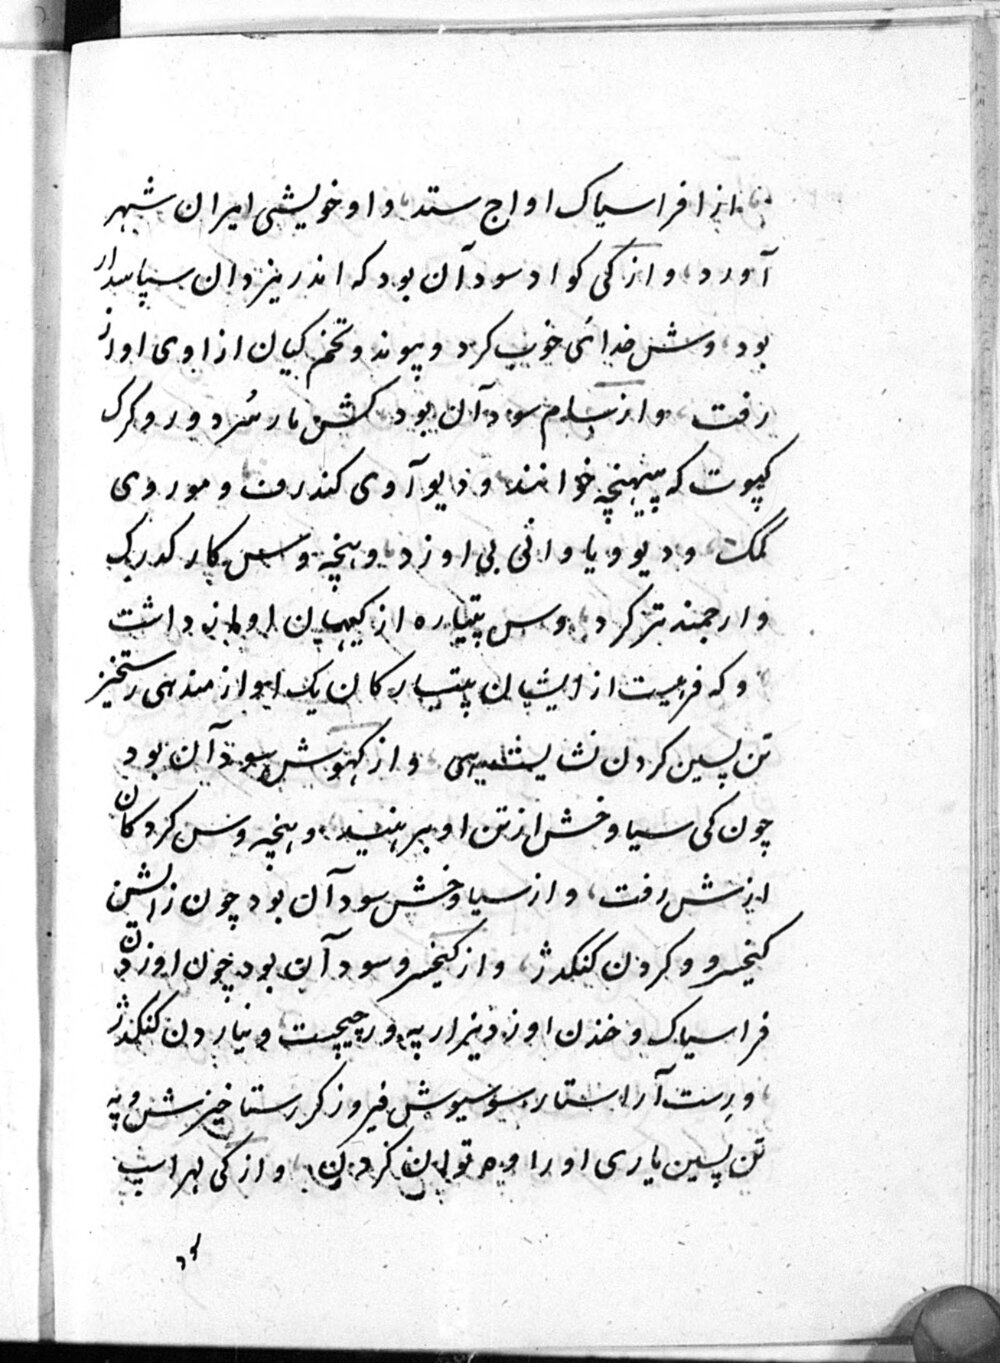 از افراسیاک اواج ستد، و او خویشی ایران شهر
آورد، و از کی کواد سود آن بود که اندر یزدان سپاسدار
بود، وش خدائی خوب کرد و پیوند و تخم کیان از اوی اواز
رفت، و از سام سود آن بود کش مار سُرد و رو کرک
کپوت که پیهنچه خوانند، و دیو آوی کندرف و مو روی
گمک، و دیو ویاوانی بی اوزد، و هنچه وس کار کدرک
و ارجمندتر کرد، وس پتیاره از کیهان اواز داشت
و که فرهیست از ایشان پتیارکان یک ایواز مندهی رستخیز
تن پسین کردن نشایستهی و از کهوش سود آن بود
چون کی سیاوخش از تن او بیرهینید، و هنچه وس کردکان
ازش رفت، و از سیاوخش سود آن بود چون زایشن
کیخسرو و کردن کنکدژ، و از کیخسرو سود آن بود چون اوزدن
فراسیاک و خذن اوزدیزار په ور چیچست و نیاردن کنکدژ
و رست آراستار سوسیوش فیروزکر رستاخیزش و په
تن پسین یاری او را وه توان کردن، و از کی لهراسپ